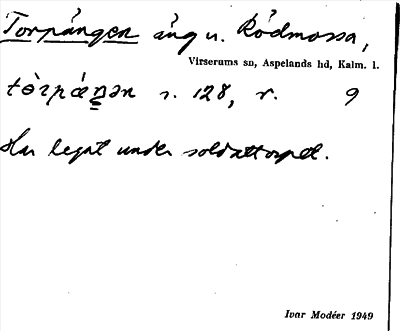 Torpängen äng u. Rödmossa,
Virserums sn, Aspelands hd, Kalm. l.
s. 128, r. 9
Har legat under soldattorpet.
Ivar Modéer 1949